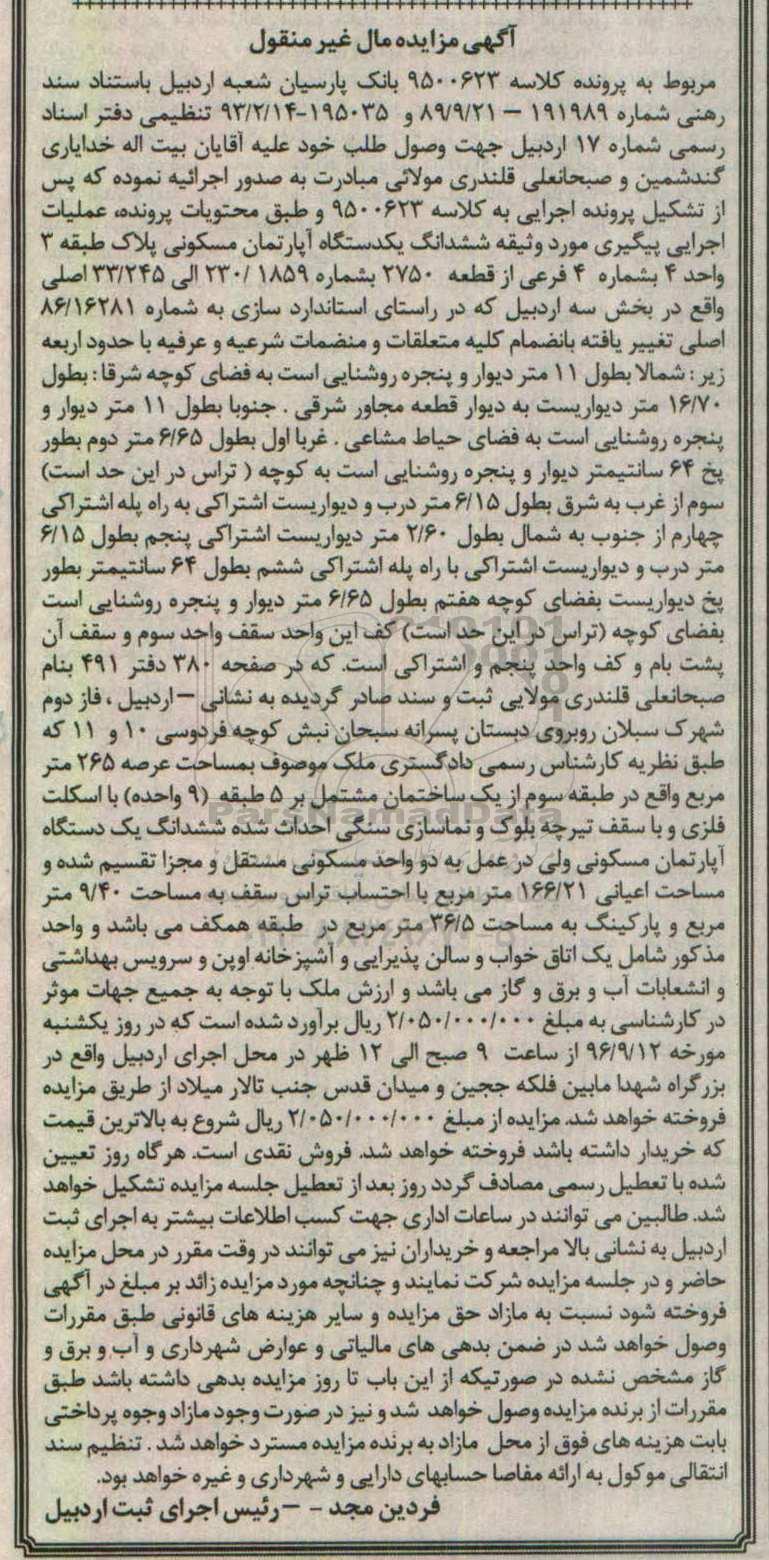 آگهی مزایده مال غیر منقول
مربوط به پرونده کلاسه ۹۵۰۰۶۲۳ بانک پارسیان شعبه اردبیل باستناد سند
رهنی شماره ۱۹۱۹۸۹ – ۸۹/۹/۲۱ و ۱۹۵۰۳۵-۹۳/۲/۱۴ تنظیمی دفتر اسناد
رسمی شماره ۱۷ اردبیل جهت وصول طلب خود علیه آقایان بیت اله خدایاری
گندشمین و صبحانعلی قلندری مولائی مبادرت به صدور اجرائیه نموده که پس
از تشکیل پرونده اجرایی به کلاسه ۹۵۰۰۶۲۳ و طبق محتویات پرونده، عملیات
اجرایی پیگیری مورد وثیقه ششدانگ یکدستگاه آپارتمان مسکونی پلاک طبقه ۳
واحد ۴ بشماره ۴ فرعی از قطعه ۲۷۵۰ بشماره ۱۸۵۹ /۲۳۰ الی ۳۳/۲۴۵ اصلی
واقع در بخش سه اردبیل که در راستای استاندارد سازی به شماره ۸۶/۱۶۲۸۱
اصلی تغییر یافته بانضمام کلیه متعلقات و منضمات شرعیه و عرفیه با حدود اربعه
زیر : شمالا بطول ۱۱ متر دیوار و پنجره روشنایی است به فضای کوچه شرقا : بطول
۱۶/۷۰ متر دیواریست به دیوار قطعه مجاور شرقی . جنوبا بطول ۱۱ متر دیوار و
پنجره روشنایی است به فضای حیاط مشاعی . غربا اول بطول ۶/۶۵ متر دوم بطور
پخ ۶۴ سانتیمتر دیوار و پنجره روشنایی است به کوچه ( تراس در این حد است)
سوم از غرب به شرق بطول ۶/۱۵ متر درب و دیواریست اشتراکی به راه پله اشتراکی
چهارم از جنوب به شمال بطول ۲/۶۰ متر دیواریست اشتراکی پنجم بطول ۶/۱۵
متر درب و دیواریست اشتراکی با راه پله اشتراکی ششم بطول ۶۴ سانتیمتر بطور
پخ دیواریست بفضای کوچه هفتم بطول ۶/۶۵ متر دیوار و پنجره روشنایی است
بفضای کوچه (تراس در این حد است) کف این واحد سقف واحد سوم و سقف آن
پشت بام و کف واحد پنجم و اشتراکی است. که در صفحه ۳۸۰ دفتر ۴۹۱ بنام
صبحانعلی قلندری مولایی ثبت و سند صادر گردیده به نشانی – اردبیل ، فاز دوم
شهرک سبلان روبروی دبستان پسرانه سبحان نبش کوچه فردوسی ۱۰ و ۱۱ که
طبق نظریه کارشناس رسمی دادگستری ملک موصوف بمساحت عرصه ۲۶۵ متر
مربع واقع در طبقه سوم از یک ساختمان مشتمل بر ۵ طبقه (۹ واحده) با اسکلت
فلزی و با سقف تیرچه بلوک و نماسازی سنگی احداث شده ششدانگ یک دستگاه
آپارتمان مسکونی ولی در عمل به دو واحد مسکونی مستقل و مجزا تقسیم شده و
مساحت اعیانی ۱۶۶/۲۱ متر مربع با احتساب تراس سقف به مساحت ۹/۴۰ متر
مربع و پارکینگ به مساحت ۳۶/۵ متر مربع در طبقه همکف می باشد و واحد
مذکور شامل یک اتاق خواب و سالن پذیرایی و آشپزخانه اوپن و سرویس بهداشتی
و انشعابات آب و برق و گاز می باشد و ارزش ملک با توجه به جمیع جهات موثر
در کارشناسی به مبلغ ۲/۰۵۰/۰۰۰/۰۰۰ ریال برآورد شده است که در روز یکشنبه
مورخه ۹۶/۹/۱۲ از ساعت ۹ صبح الی ۱۲ ظهر در محل اجرای اردبیل واقع در
بزرگراه شهدا مابین فلکه ججین و میدان قدس جنب تالار میلاد از طریق مزایده
فروخته خواهد شد. مزایده از مبلغ ۲/۰۵۰/۰۰۰/۰۰۰ ریال شروع به بالاترین قیمت
که خریدار داشته باشد فروخته خواهد شد. فروش نقدی است. هرگاه روز تعیین
شده با تعطیل رسمی مصادف گردد روز بعد از تعطیل جلسه مزایده تشکیل خواهد
شد. طالبین می توانند در ساعات اداری جهت کسب اطلاعات بیشتر به اجرای ثبت
اردبیل به نشانی بالا مراجعه و خریداران نیز می توانند در وقت مقرر در محل مزایده
حاضر و در جلسه مزایده شرکت نمایند و چنانچه مورد مزایده زائد بر مبلغ در آگهی
فروخته شود نسبت به مازاد حق مزایده و سایر هزینه های قانونی طبق مقررات
وصول خواهد شد در ضمن بدهی های مالیاتی و عوارض شهرداری و آب و برق و
گاز مشخص نشده در صورتیکه از این باب تا روز مزایده بدهی داشته باشد طبق
مقررات از برنده مزایده وصول خواهد شد و نیز در صورت وجود مازاد وجوه پرداختی
بابت هزینه های فوق از محل مازاد به برنده مزایده مسترد خواهد شد . تنظیم سند
انتقالی موکول به ارائه مفاصا حسابهای دارایی و شهرداری و غیره خواهد بود.
فردین مجد - – رئیس اجرای ثبت اردبیل
ParsNamadData